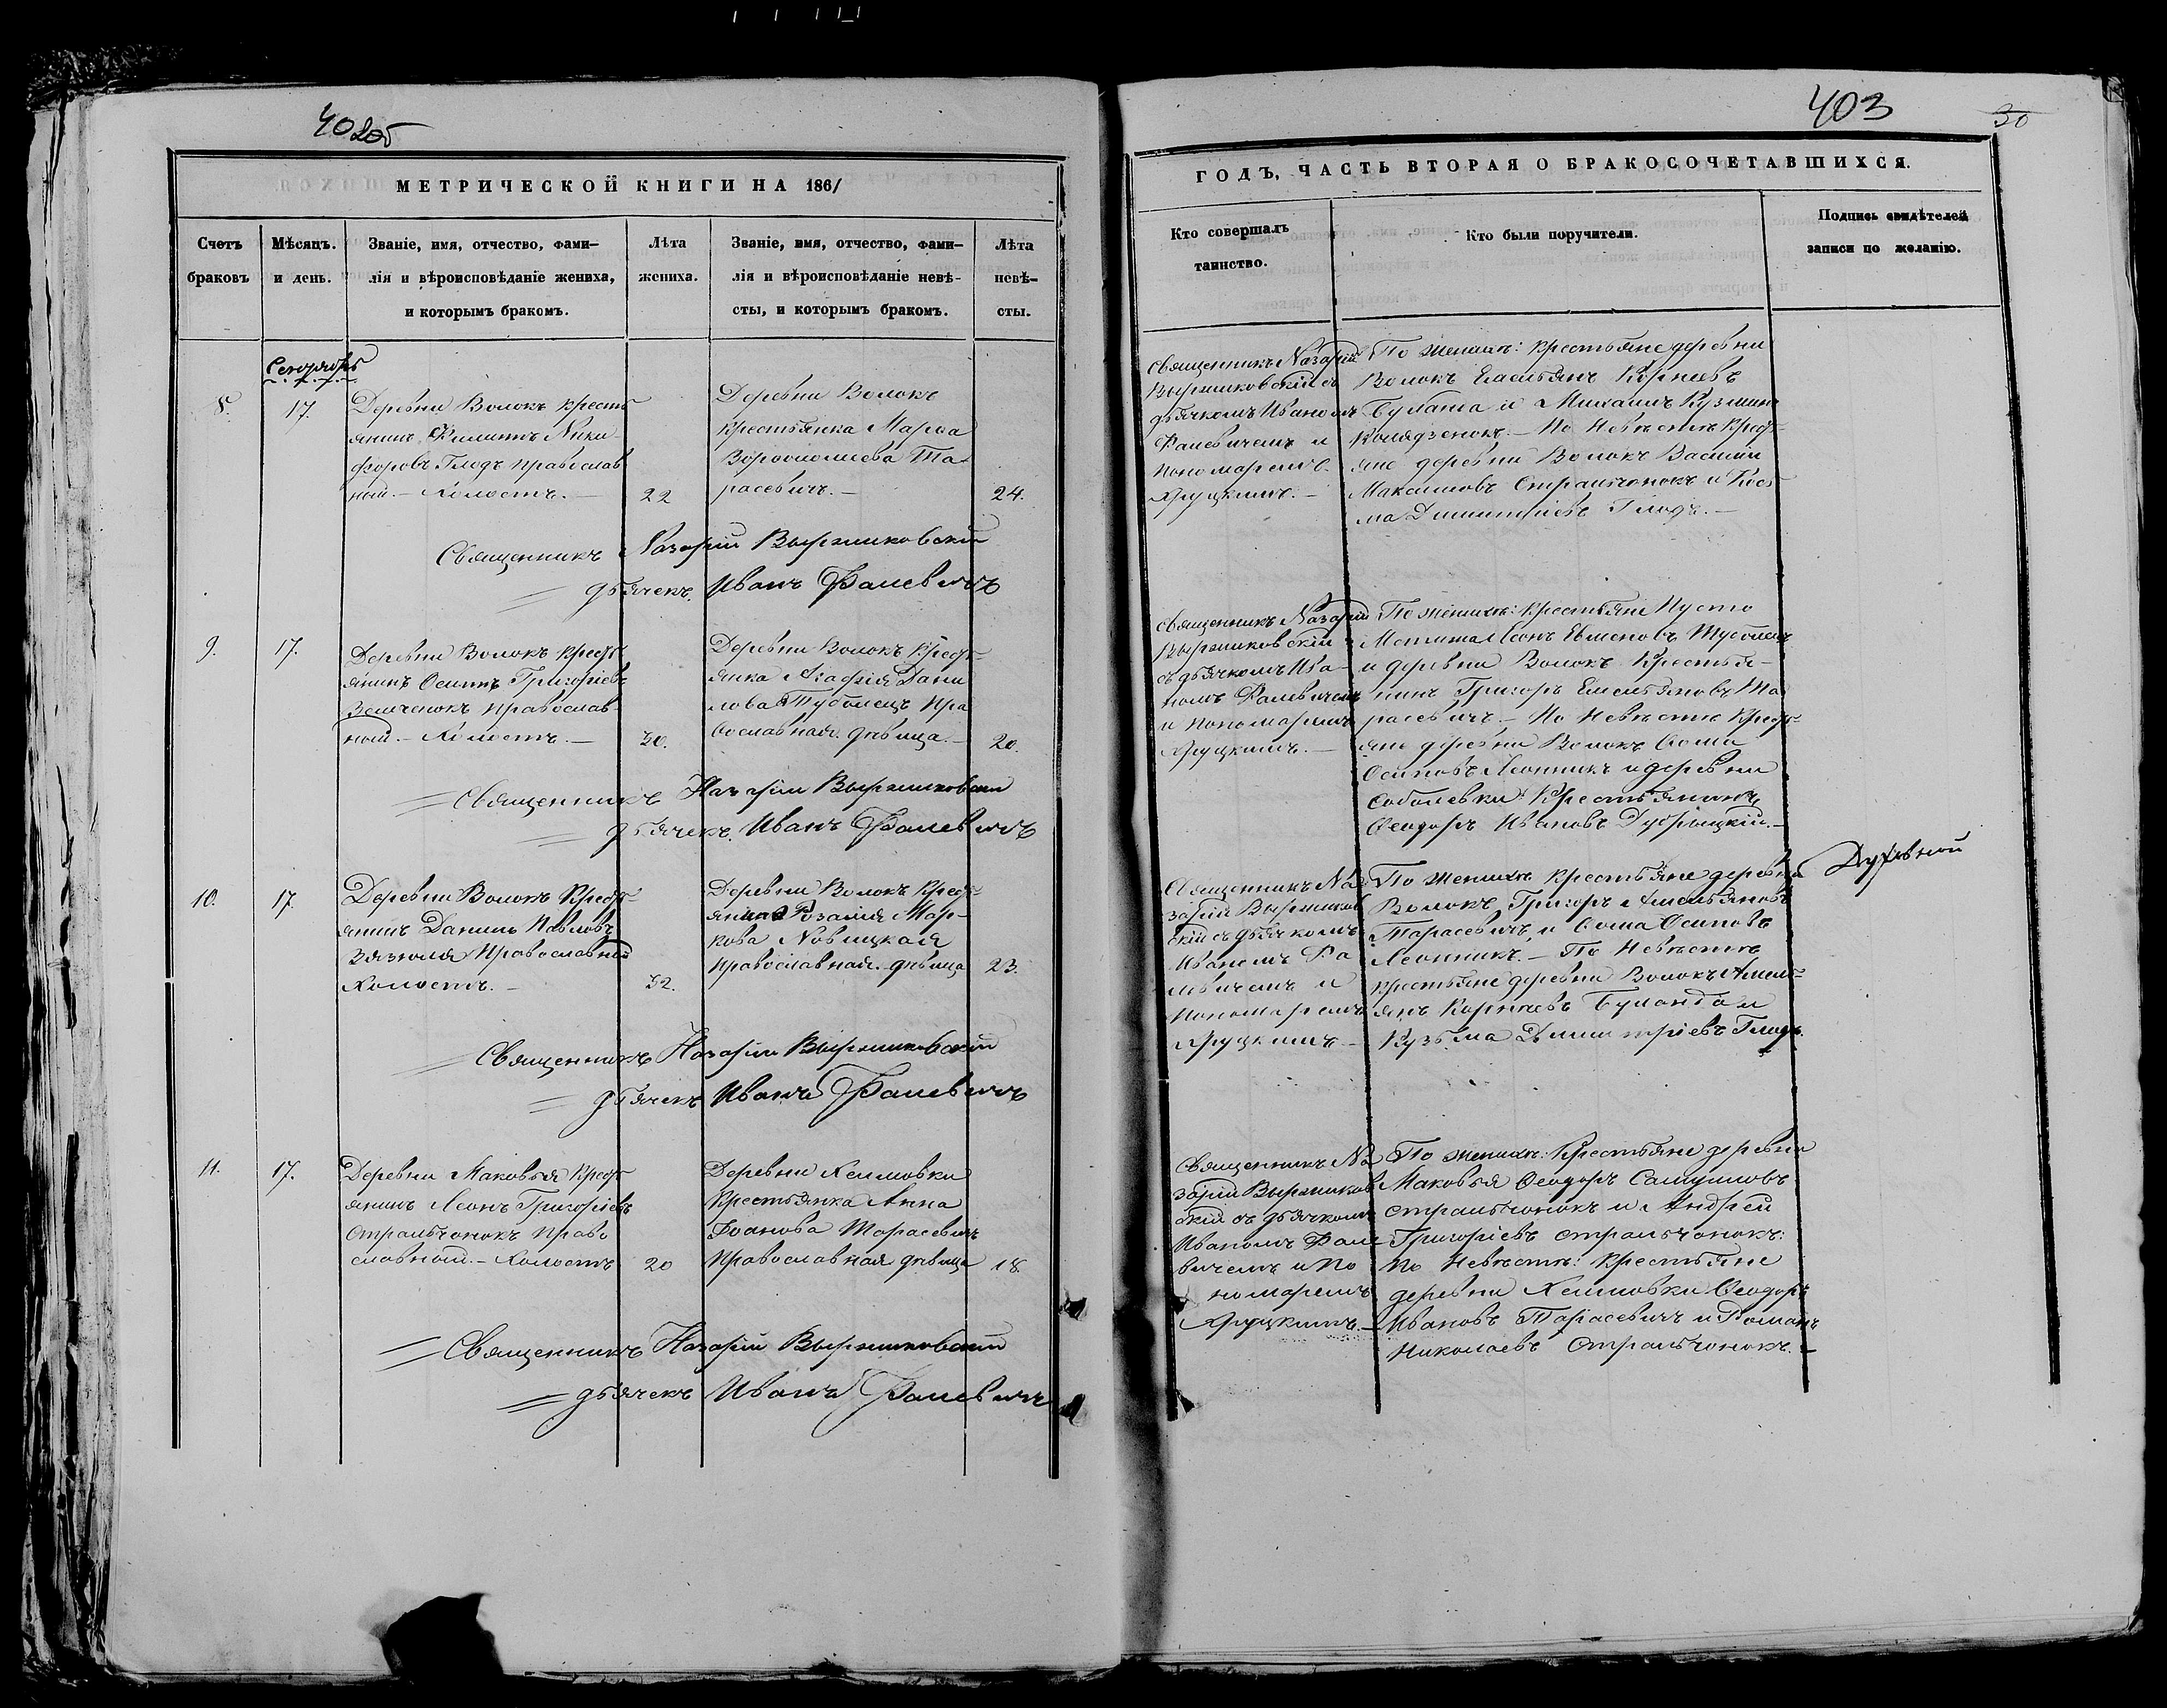 403
30
МЕТРИЧЕСКОЙ КНИГИ НА 1861
ГОДЪ, ЧАСТЬ ВТОРАЯ О БРАКОСОЧЕТАВШИХСЯ.
Счетъ
браковъ
Мѣсяцъ.
и день.
Званіе, имя, отчество, фами–
лія и вѣроисповѣданіе жениха,
и которымъ бракомъ.
Лѣта
жениха.
Званіе, имя, отчество, фами–
лія и вѣроисповѣданіе невѣ-
сты, и которымъ бракомъ.
Лѣта
невѣ–
сты.
Кто совершалъ
таинство.
Кто были поручители.
Подпись свидѣтелей
записи по желанію.
8.
17.
Деревни Волокъ Кресть
янинъ Филипъ Ники-
форовъ Глодъ Православ
ный. – Холостъ. –
22
Деревни Волокъ
крестьянка Марѳа
Та
расевичъ. –
24.
Священникъ Назарій
Выржиковскій съ
дьячкомъ Иваномъ
Фалевичемъ и
пономаремъ
Яруцкимъ. –
По Жениху: крестьяне деревни
Волокъ Корнеевъ
и Михаилъ Кузминъ
– По Невѣсте Крест-
яне деревни Волокъ Василій
Максимовъ Стральчонокъ и Кось
ма Димитріевъ Глодъ. –
Священникъ Назарій Выржиковскій
дьячекъ. Иванъ Фалевичъ
9.
17.
Деревни Волокъ Крест
янинъ Осипъ Григорьевъ
Православ
ный. – Холостъ. –
30.
Деревни Волокъ Крест-
янка Агафія Дани
лова Туболецъ Пра
вославная. дѣвица. –
20.
Священникъ Назарій
Выржиковскій
съ дьячкомъ Ива-
номъ Фалевичемъ
и пономаремъ
Яруцкимъ. –
По Жениху: Крестьяне Пусто
Леонъ Туболецъ
и деревни Волокъ Крестья-
нинъ Григоръ Емельяновъ Та
расевичъ. – По Невѣсте Крест-
яне деревни Волокъ Ѳома
Осиповъ Леонникъ и деревни
Соболевки Крестьянинъ
Ѳеодоръ Ивановъ Дубрицкій. –
Священникъ Назарій Выржиковскій
дьячекъ. Иванъ Фалевичъ
10.
17.
Деревни Волокъ Крест-
янинъ Данилъ Павловъ
Зязюля Православный
Холостъ. –
32.
Деревни Волокъ Крест-
янка Розалія Мар-
кова Новицкая
Православная. дѣвица
23.
Священникъ На
зарій Выржиков
скій съ дьячкомъ
Иваномъ Фа
левичемъ и
пономаремъ
Яруцкимъ –
По Жениху Крестьяне деревни
Волокъ Григоръ Амельяновъ
Тарасевичъ и Ѳома Осиповъ
Леонникъ. – По Невѣсте
крестьяне деревни Волокъ Амель-
янъ Корнеевъ и
Кузьма Димитріевъ Глодъ.
Священникъ Назарій Выржиковскій
дьячекъ Иванъ Фалевичъ
11.
17.
Деревни Маковья Крест
янинъ Леонъ Григорьевъ
Стральчонокъ Право
славный. – Холостъ
20
Деревни Хелмовки
Крестьянка Анна
Иванова Тарасевичъ
Православная дѣвица
18.
Священникъ На
зарій Выржиков
скій съ дьячкомъ
Иваномъ Фале
вичемъ и по
номаремъ
Яруцкимъ. –
По Жениху: Крестьяне деревни
Маковья Ѳеодоръ Самуиловъ
Стральчонокъ и Андрей
Григорьевъ Стральчонокъ:
по Невѣсте: Крестьяне
деревни Хелмовки Ѳеодоръ
Ивановъ Тарасевичъ и Романъ
Николаевъ Стральчонокъ. –
Священникъ Назарій Выржиковскій
дьячекъ Иванъ Фалевичъ